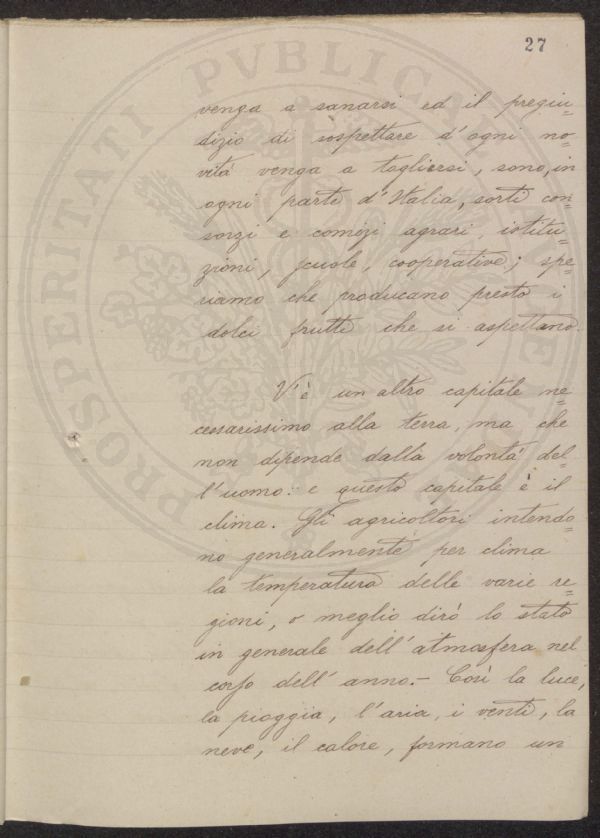 27
venga a sanarsi ed il pregiu=
dizio di sospettare d'ogni no=
vità venga a togliersi, sono, in
ogni parte d'Italia, sorti con=
sorzi e comizi agrari, istitu=
zioni, scuole, cooperative; spe=
riamo che producano presto i
dolci frutti che si aspettano.
V'è un altro capitale ne=
cessarissimo alla terra, ma che
non dipende dalla volontà del=
l'uomo: e questo capitale è il
clima. Gli agricoltori intendo=
no generalmente per clima
la temperatura delle varie re=
gioni, o meglio dirò lo stato
in generale dell'atmosfera nel
corso dell'anno.- Così la luce,
la pioggia, l'aria, i venti, la
neve, il calore, formano un
PROSPERITATI PVBLICAE